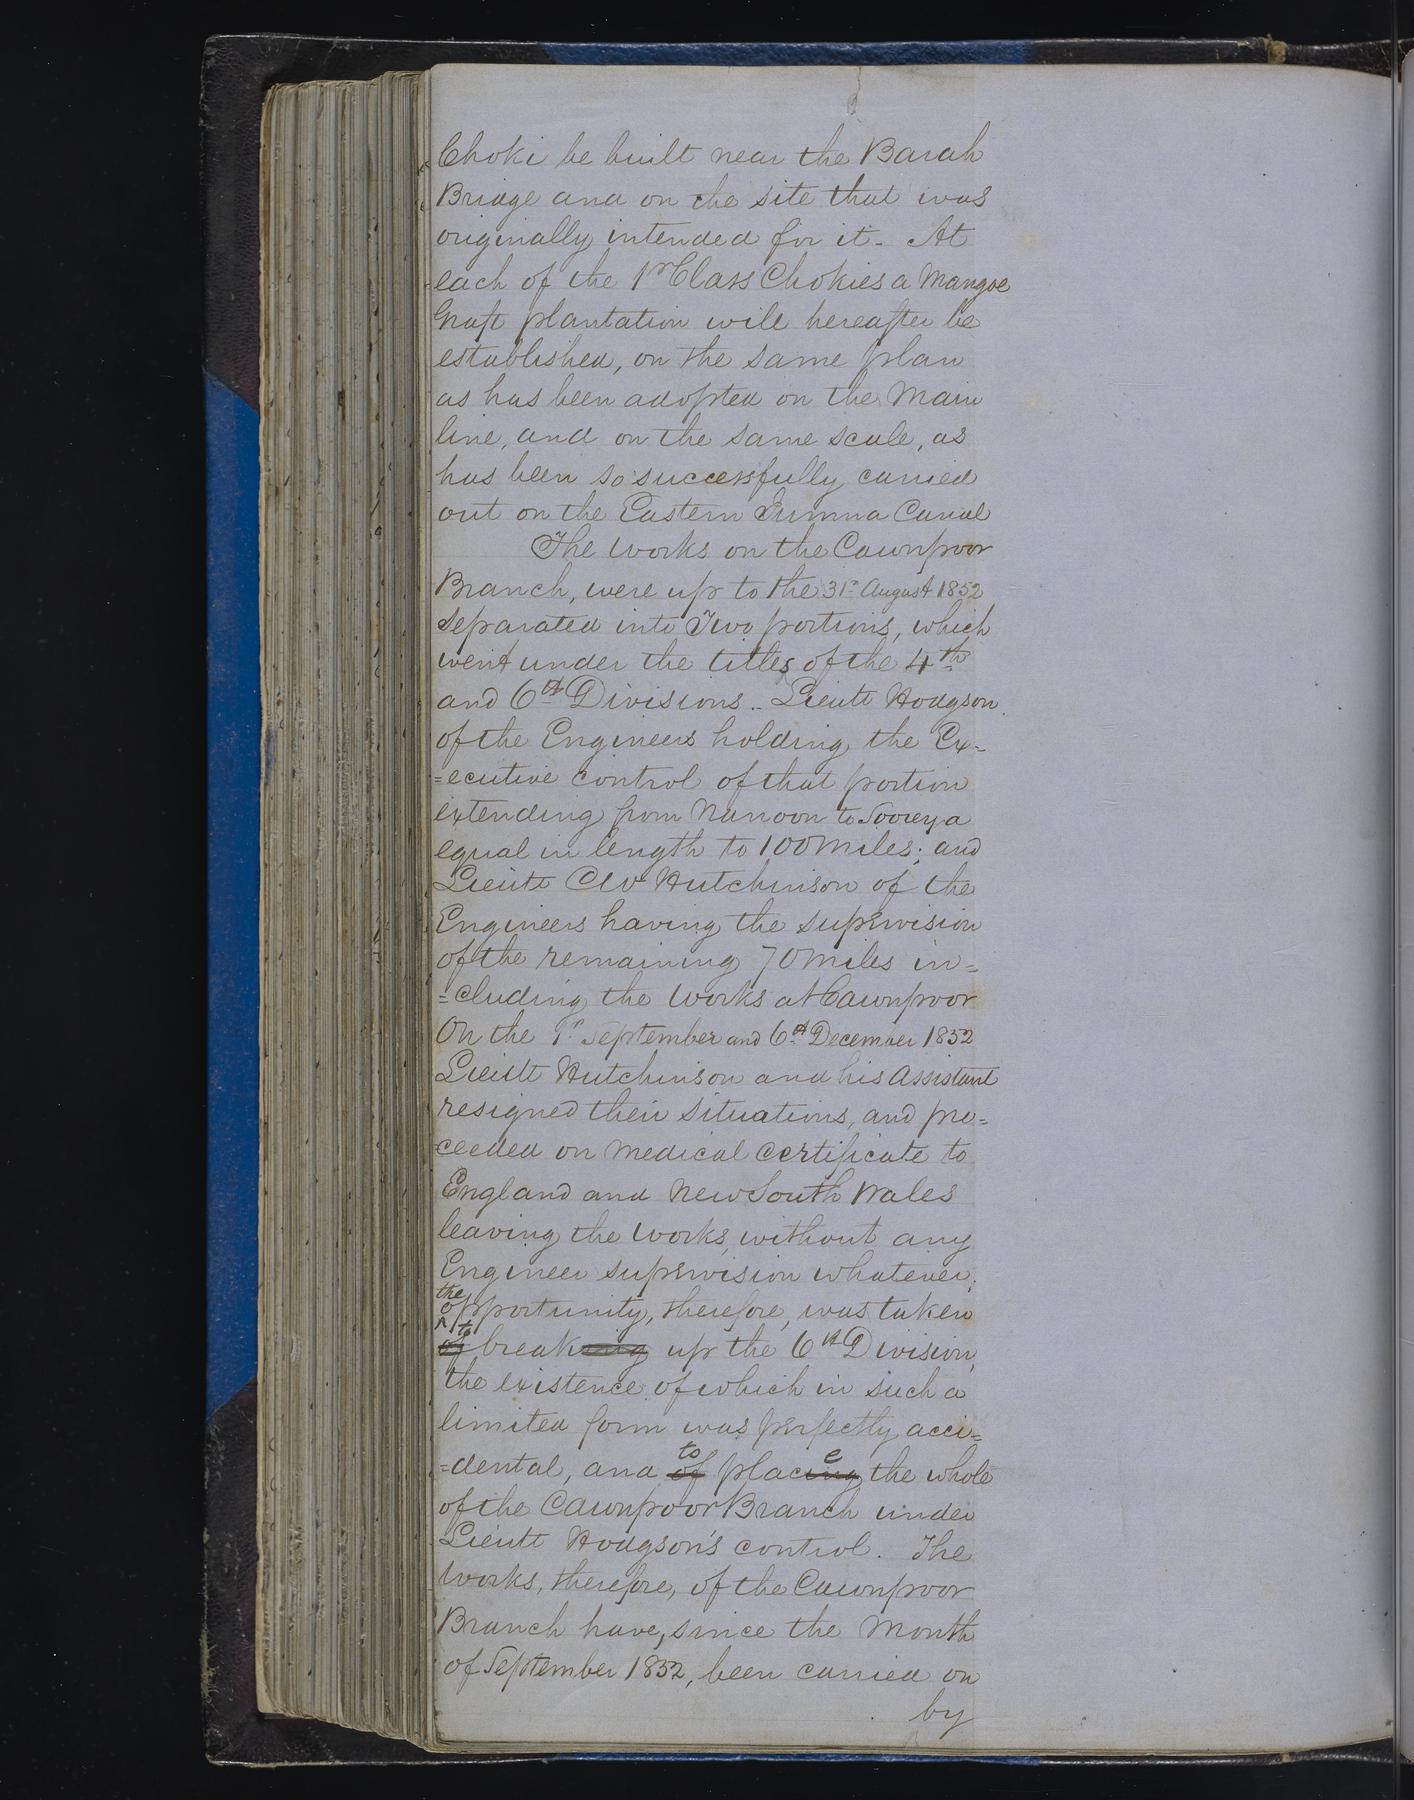 Choki be built near the Barah
Bridge and on the site that was
originally intended for it. At
each of the 1st Class Chokies a Mangoe
Graft plantation will hereafter be
established, on the same plan
as has been adopted on the Main
line, and on the same scale, as
has been so successfully carried
out on the Eastern Jumna Canal
The works on the Cawnpoor
Branch, were up to the 31st August 1852
separated into Two portions, which
went under the titles of the 4th
and 6th Divisions.. Lieutt Hodgson
of the Engineers holding the Ex-
=ecutive control of that portion
extending from Nanoon to Sooreya
equal in length to 100 miles; and
Lieutt CW Hutchinson of the
Engineers having the supervision
of the remaining 70 miles in=
=cluding the works at Cawnpoor
On the September and 6th December 1852
Lieutt Hutchinson and his Assistant
resigned their situations, and pro=
ceeded on medical certificate to
England and New South Wales
leaving the works, without any
Engineer supervision whatever;
the opportunity, therefore, was taken
of to breaking up the 6th Division,
the existence of which in such a
limited form was perfectly acci=
=dental, and of to placing e the whole
of the Cawnpoor Branch under
Lieutt Hodgson's control. The
works, therefore, of the Cawnpoor
Branch have, since the Month
of September 1852, been carried on
by